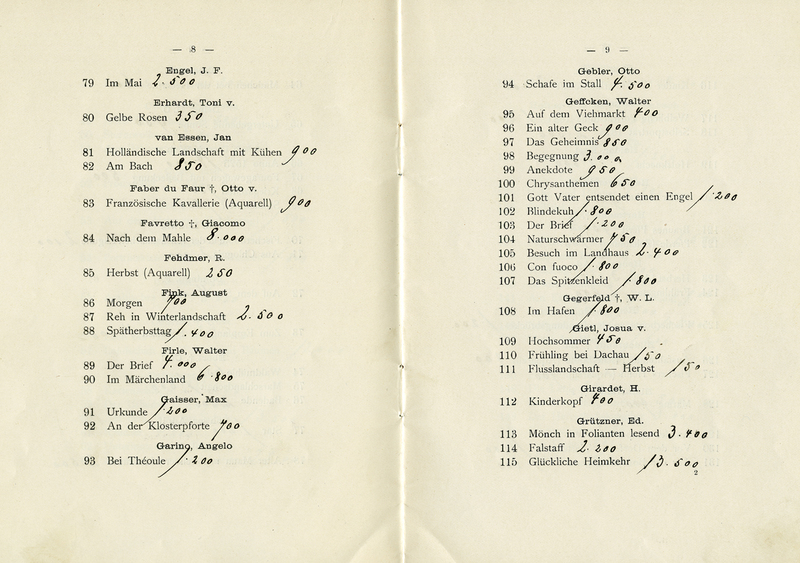 — 8 —
Engel, J. F.
79 Im Mai 2.500
Erhardt, Toni v.
80 Gelbe Rosen 350
van Essen, Jan
81 Holländische Landschaft mit Kühen 900
82 Am Bach 850
Faber du Faur †, Otto v.
83 Französische Kavallerie (Aquarell) 900
Favretto †, Giacomo
84 Nach dem Mahle 8.000
Fehdmer, R.
85 Herbst (Aquarell) 250
Fink, August
86 Morgen 700
87 Reh in Winterlandschaft 2.500
88 Spätherbsttag 1.400
Firle, Walter
89 Der Brief 4.000
90 Im Märchenland 6.800
Gaisser, Max
91 Urkunde 1.200
92 An der Klosterpforte 700
Garino, Angelo
93 Bei Théoule 1.200
— 9 —
Gebler, Otto
94 Schafe im Stall 4.500
Geffcken, Walter
95 Auf dem Viehmarkt 400
96 Ein alter Geck 900
97 Das Geheimnis 850
98 Begegnung 3.000
99 Anekdote 950
100 Chrysanthemen 650
101 Gott Vater entsendet einen Engel 1.200
102 Blindekuh 1.800
103 Der Brief 1.200
104 Naturschwärmer 750
105 Besuch im Landhaus 2.400
106 Con fuoco 1.800
107 Das Spitzenkleid 1.800
Gegerfeld †, W. L.
108 Im Hafen 1.800
Gietl, Josua v.
109 Hochsommer 450
110 Frühling bei Dachau 150
111 Flusslandschaft — Herbst 150
Girardet, H.
112 Kinderkopf 400
Grützner, Ed.
113 Mönch in Folianten lesend 3.400
114 Falstaff 2.200
115 Glückliche Heimkehr 13.500
2